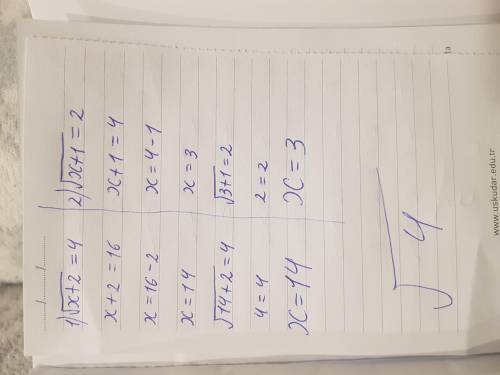 ...../...../.....
1) √x+2 = 4
x+2 = 16
x = 16 - 2
x = 14
√14+2 = 4
4 = 4
x = 14
2) √x+1 = 2
x+1 = 4
x = 4 - 1
x = 3
√3+1 = 2
2 = 2
x = 3
√4
www.uskudar.edu.tr